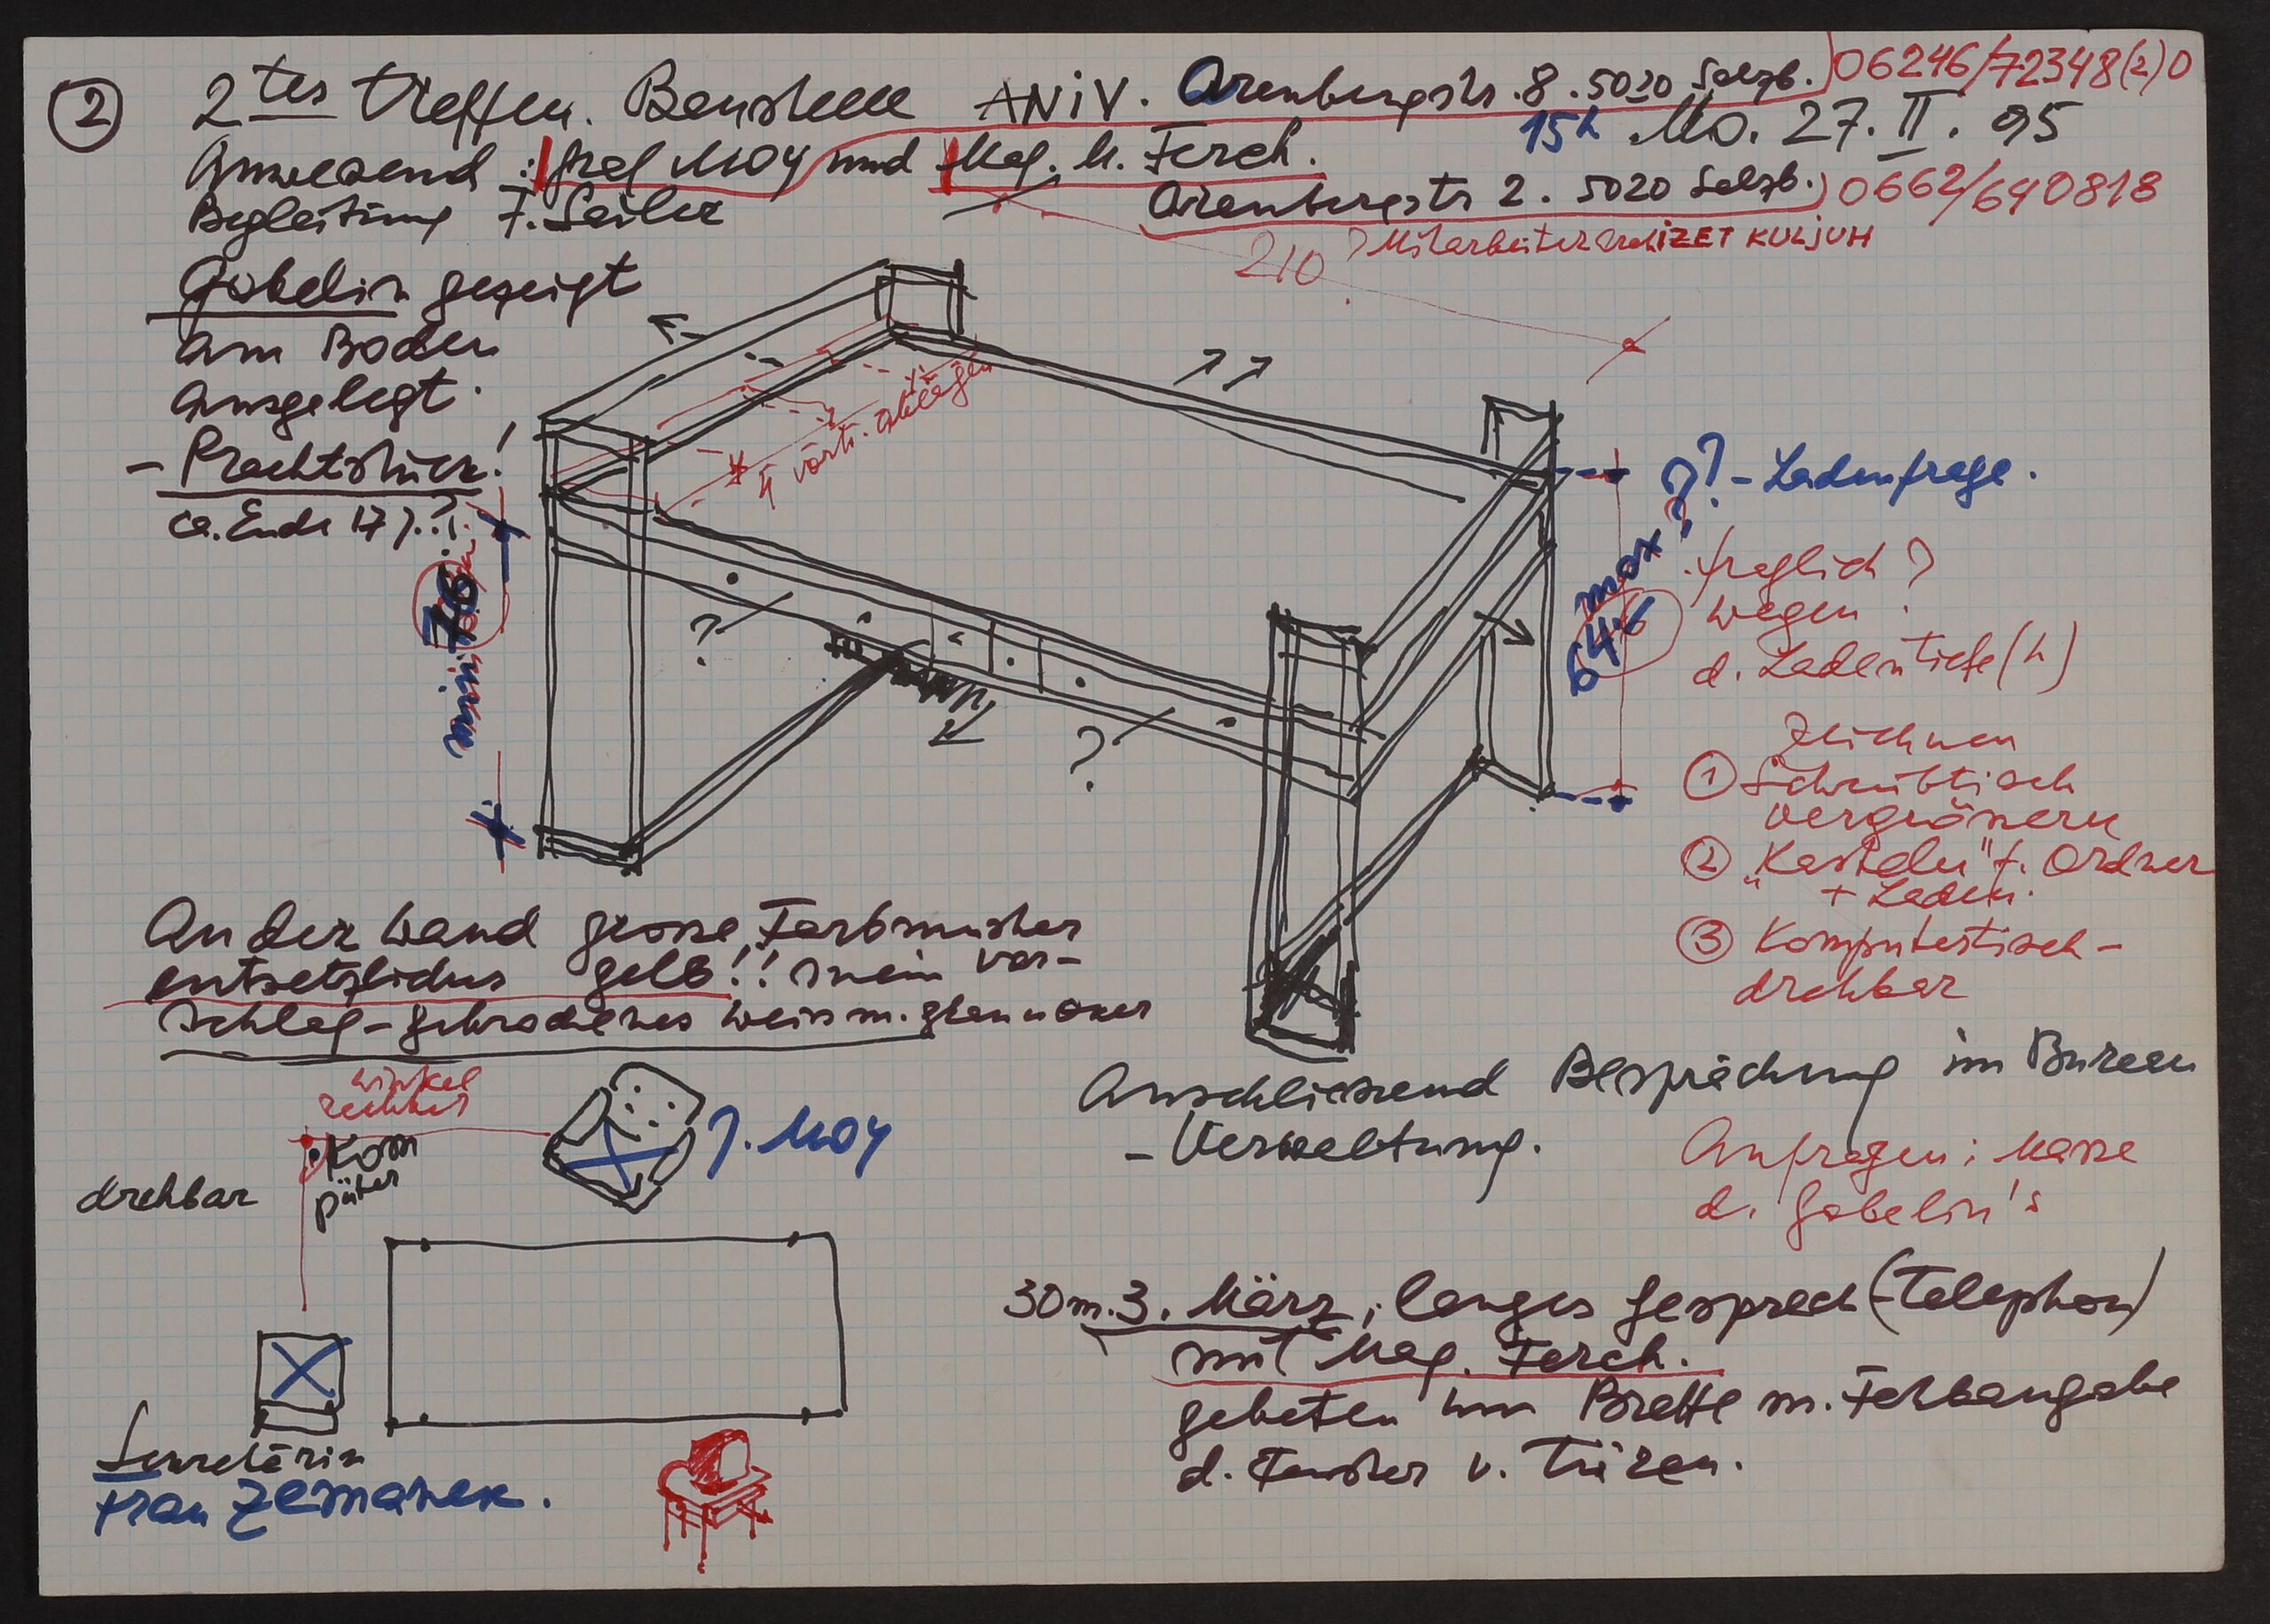 2
2tes Treffen. Baustelle ANIV. Arenbergstr. 8. 5020 Salzb. 06246/72348(2)0
15h Mo. 27. II. 95
Anwesend: Graf MOY und Mag. M. Ferch.
Arenbergstr 2. 5020 Salzb. 0662/640818
Begleitung F. Seiler
Mitarbeiter IZET KULJUH
210
Gobelin gezeigt
am Boden
ausgelegt.
- Prachtstück!
ca. Ende 17 J.?
4 vort. Ablagen
?? - Ladenfrage.
min 76
max ?
64.6
fraglich?
wegen
d. Ladentiefe (h)
?
?
Zeichnen
1 Schreibtisch
vergrössern
2 "Kasteln" f. Ordner
+ Laden.
3 Komputertisch-
drehbar
An der Wand grosse Farbmuster
entsetzliches gelb!! mein Vor-
schlag - gebrochenes Weiss m.
Anschliessend Besprechung im Bureau
- Verwaltung.
Winkel
rechter
Kom
puter
drehbar
J. MOY
Anfragen: Masse
d. Gobelin's
30m. 3. März; langes Gespräch (Telephon)
mit Mag. Ferch.
gebeten um Brette m. Farbangabe
d. Fenster v. Türen.
Sekretärin
Frau Zemanek.